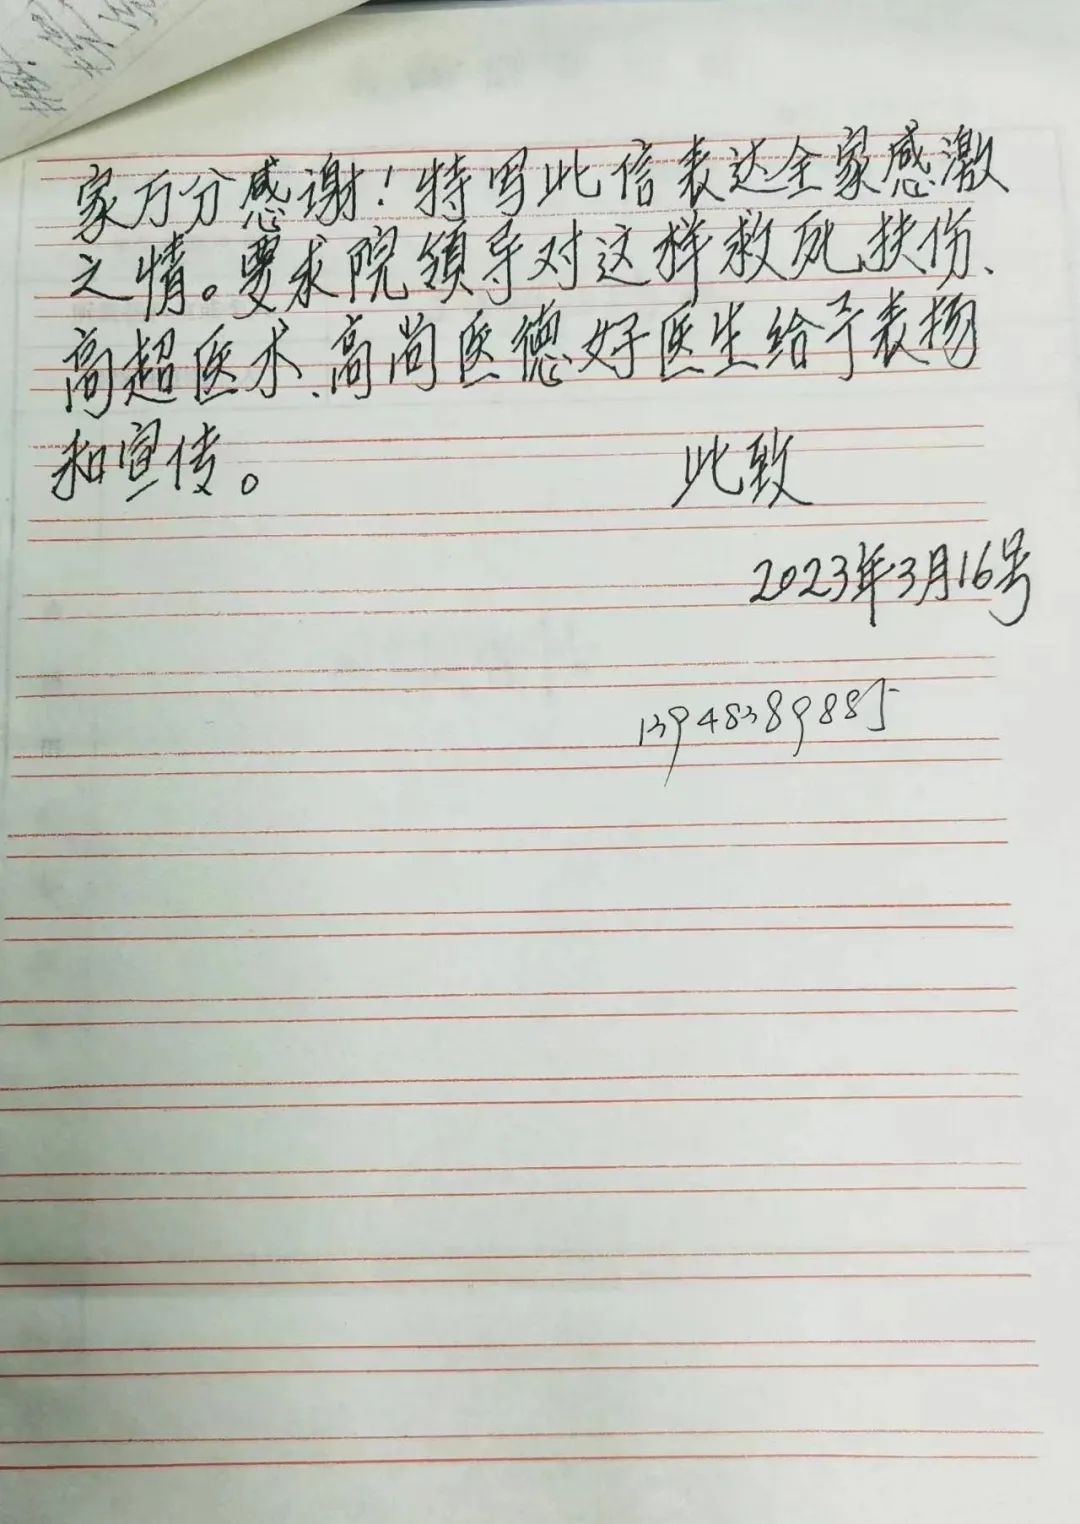 家万分感谢！特写此信表达全家感激
之情。要求院领导对这样救死扶伤、
高超医术、高尚医德好医生给予表扬
和宣传。
此致
2023年3月16号
13948389885